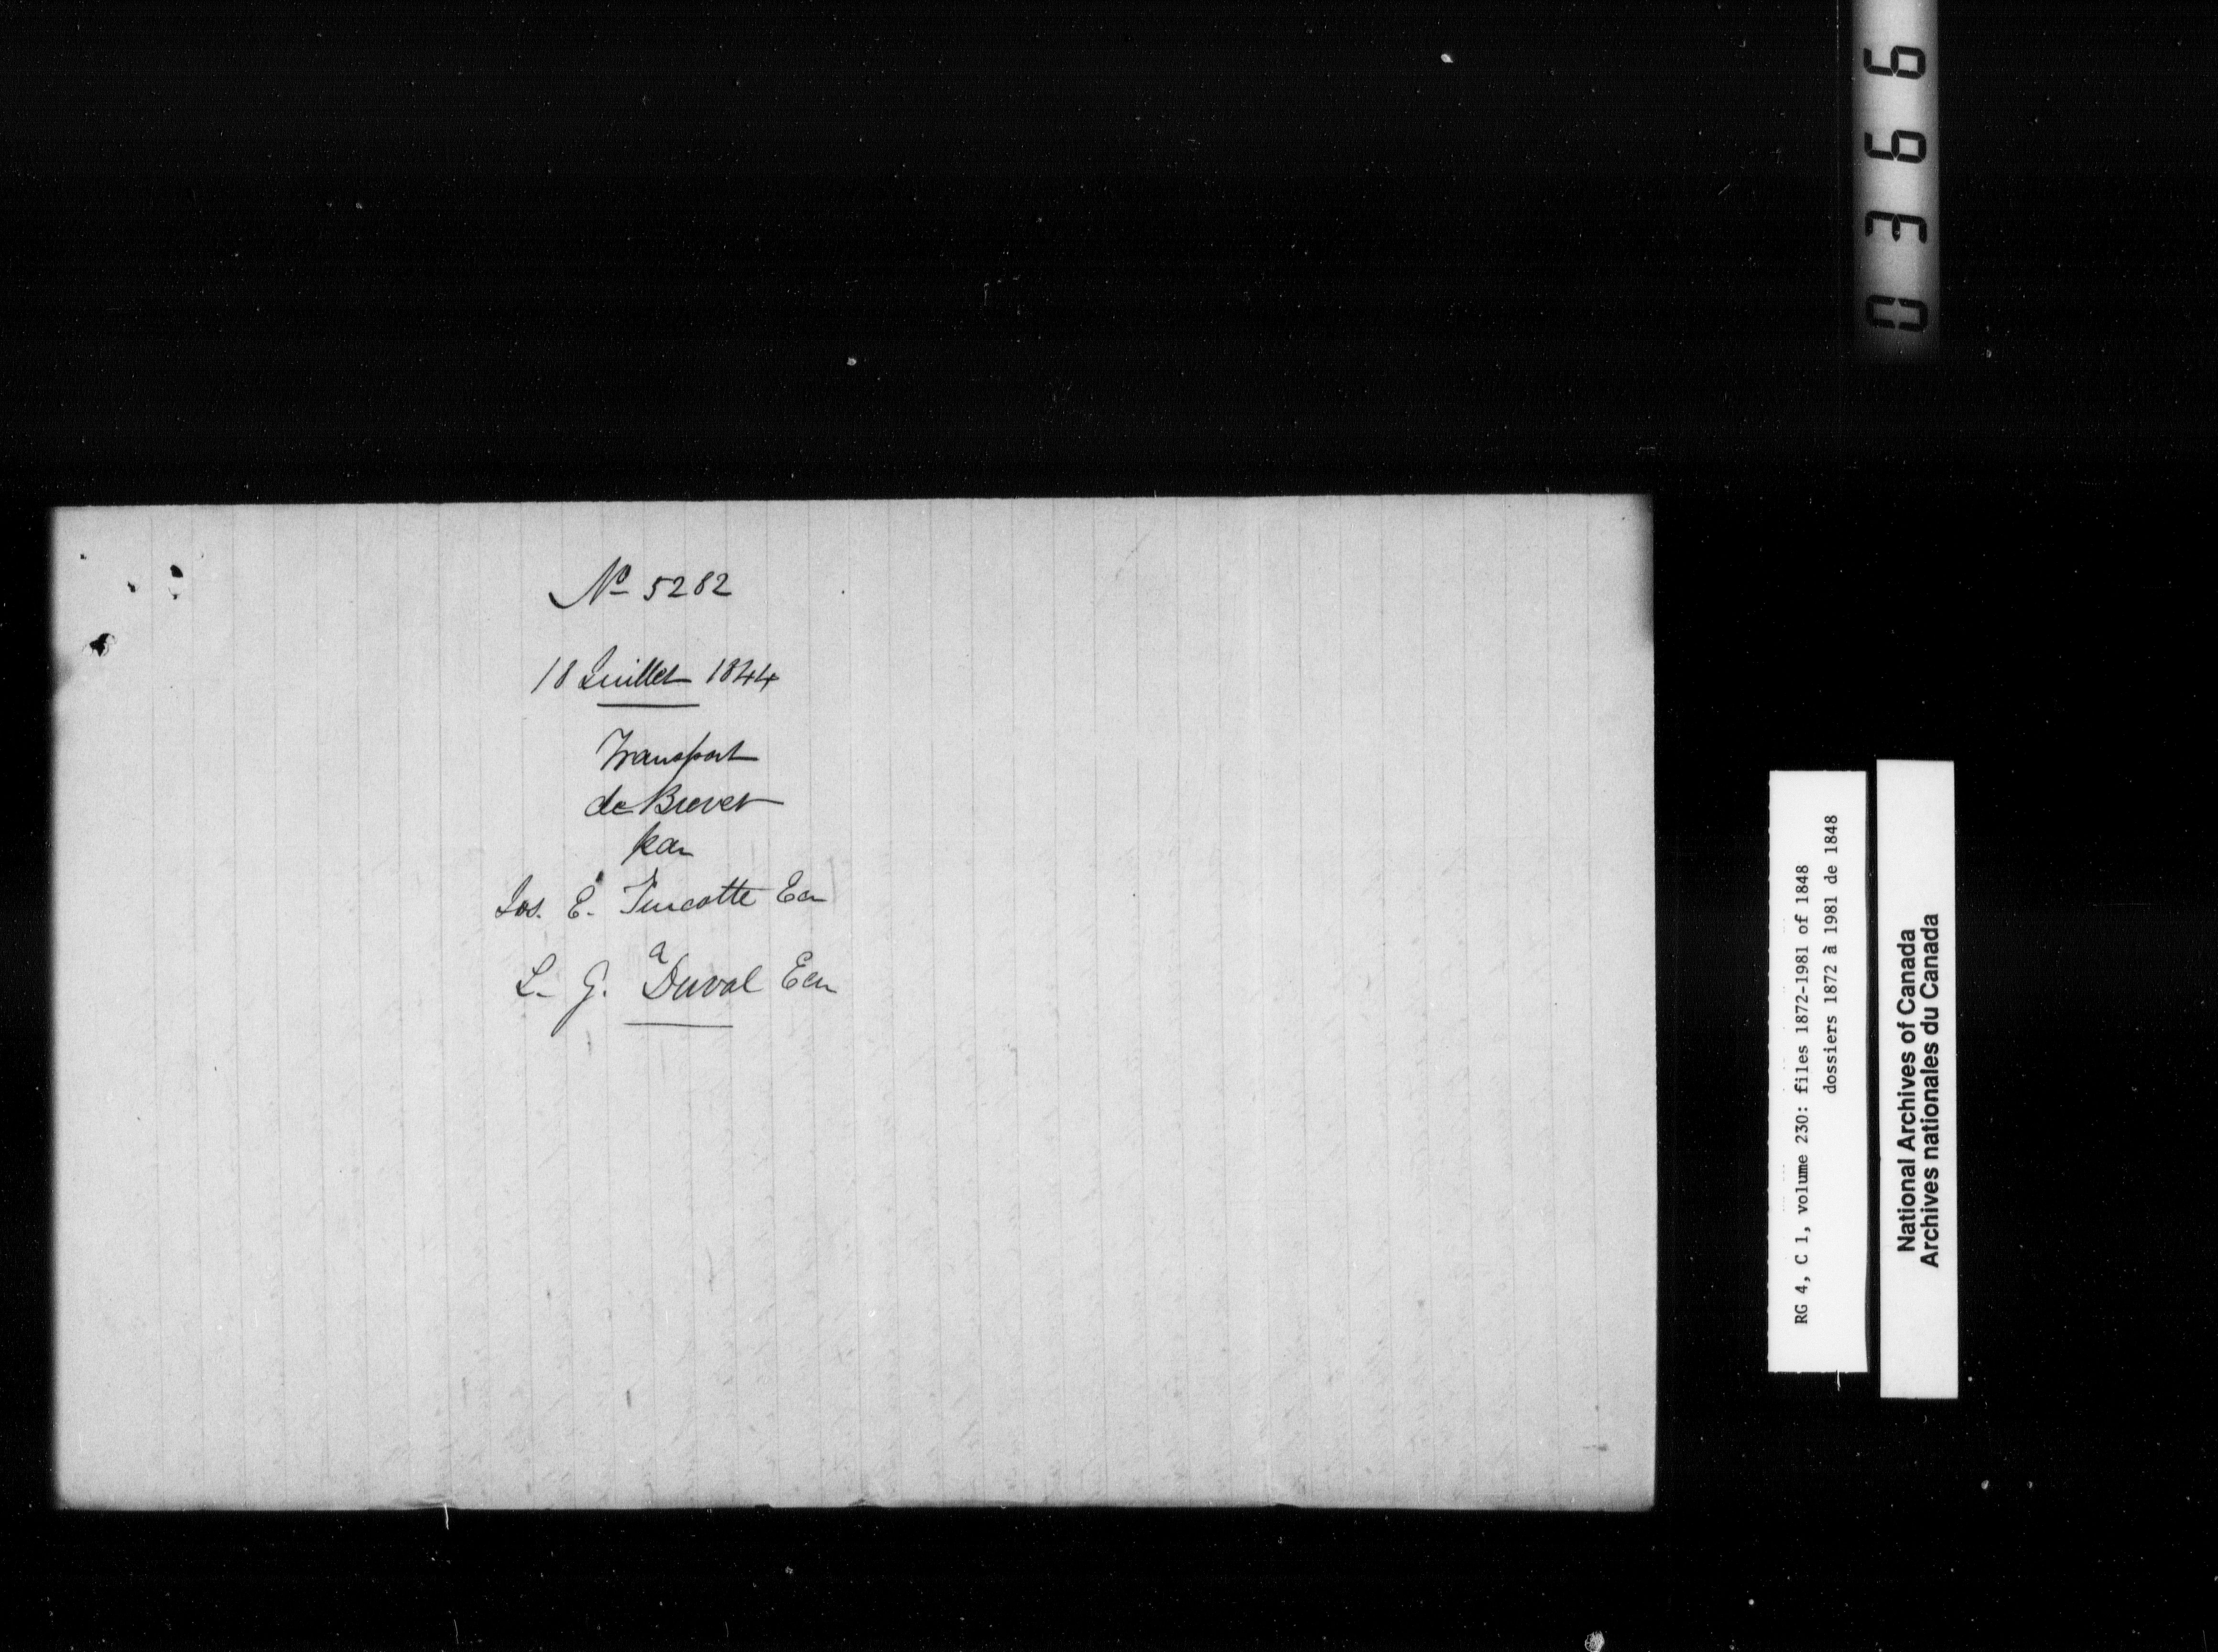 No 5282
18 Juillet 1844
Transport
de Brevet
par
Jos. E. Turcotte Ecr
a
L. G. Duval Ecr
0366
RG 4, C 1, volume 230: files 1872-1981 of 1848
dossiers 1872 à 1981 de 1848
National Archives of Canada
Archives nationales du Canada